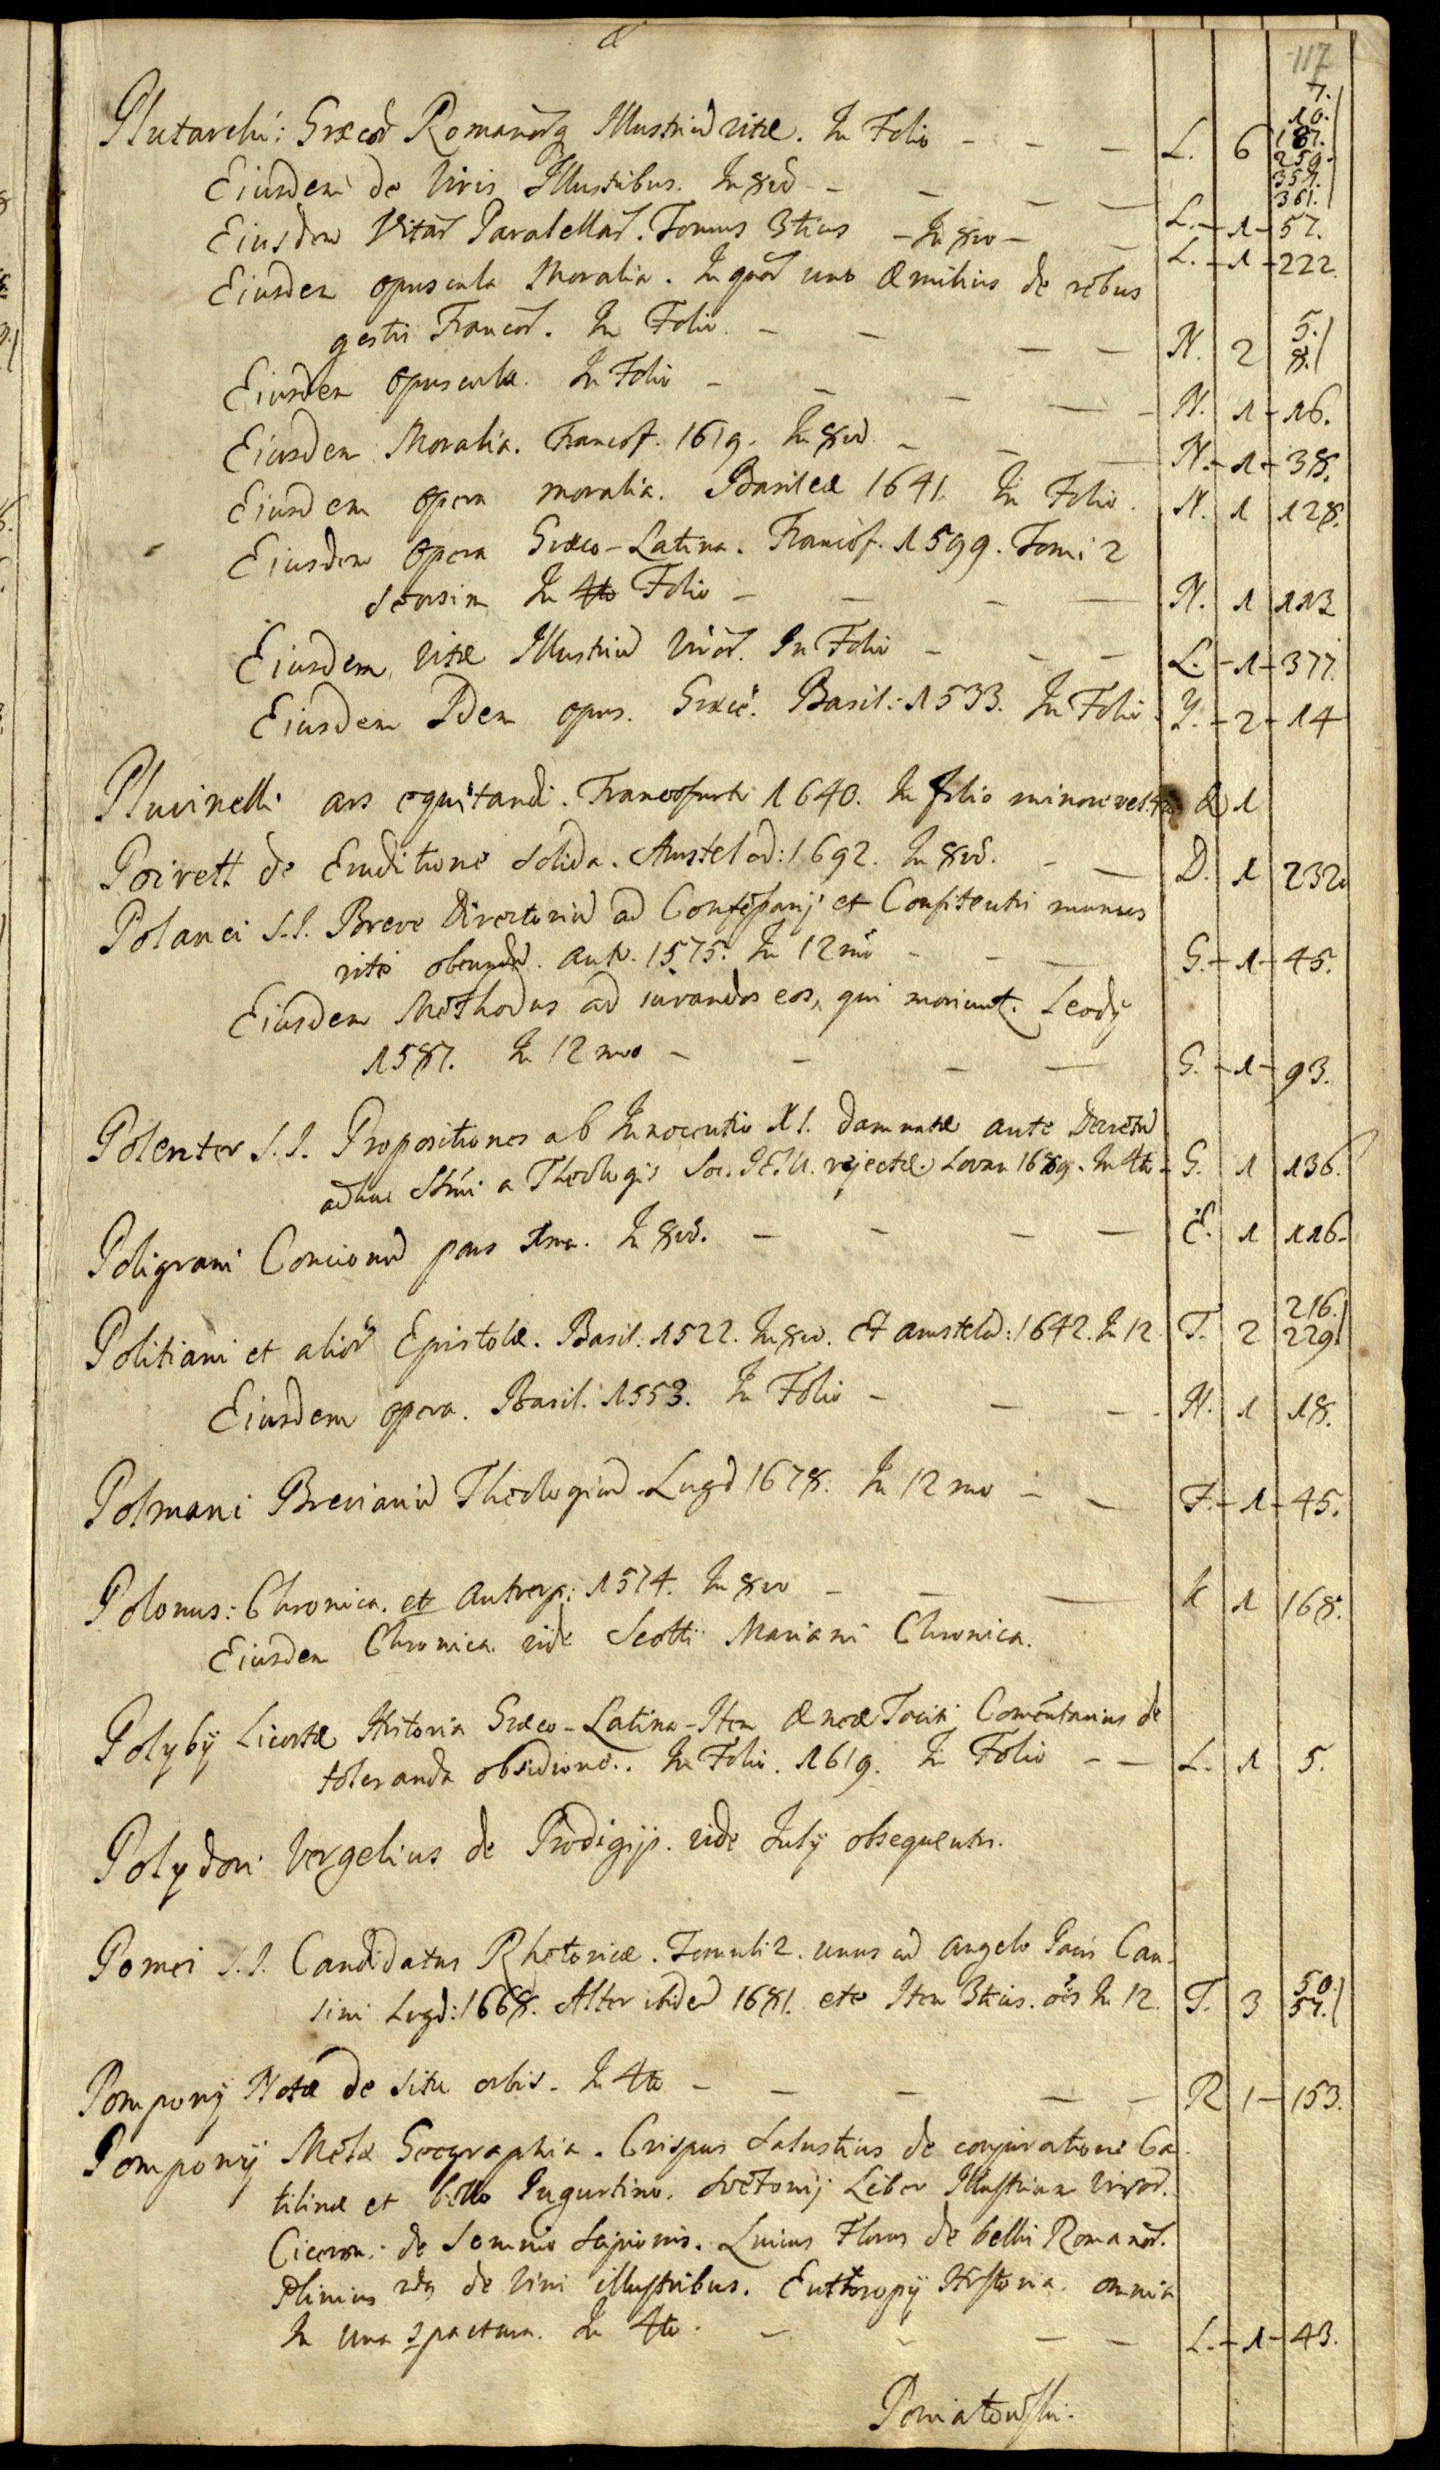 117
Plutarchi: Græcor̃ Romanorq̃ Illustriũ vitæ. In Folio — — — L. 6 7. 10. 187. 259. 354. 361.
Eiusdem de Viris Illustribus. In 8vo - — — — L. - 1 - 57.
Eiusdem Vitar̃ Parallellar̃. Tomus 3tius - In 8vo - — L. - 1 - 222.
Eiusdem opuscula Moralia. In quor̃ uno Æmilius de rebus
gestis Francor̃. In Folio. — — — — N. 2 5. 8.
Eiusdem opuscula. In Folio - — — — - N. 1 - 16.
Eiusdem Moralia. Francof. 1619. In 8vo. - — — N. - 1 - 38.
Eiusdem opera moralia. Basileæ 1641. In Folio. N. 1 128.
Eiusdem opera Græco-Latina. Francof. 1599. Tomi 2
seorsim In 4to Folio — — - — N. 1 113
Eiusdem vitæ Illustriũ Viror̃. In Folio - — — L. - 1 - 377.
Eiusdem Idem opus. Græcè. Basil: 1533. In Folio. Y. - 2 - 14
Pluvinelli ars equitandi. Francofurti 1640. In folio minore & 1
Poirett de Eruditione solida. Amstelod: 1692. In 8vo. - — D. 1 232
Polanci S.I. Breve Directoriũ ad Confessarij et Confitentis munus
ritè obeundũ. Antv. 1575. In 12mo - - — G. - 1 - 45.
Eiusdem Methodus ad iuvandos eos, qui moriunt̃. Leodij
1587. In 12mo - — — — G. - 1 - 93.
Polenter S.I. Propositiones ab Innocentio XI. damnatæ ante Decretũ
adhuc a Theologis Soc. IESU. rejectæ. Lovan 1689. In 4to - G. 1 136.
Poligrani Concionũ pars 1ma. In 8vo. — - — — E. 1 116.
Politiani et alior̃ Epistolæ. Basil: 1522. In 8vo. et Amstelod: 1642. In 12 T. 2 216. 229.
Eiusdem opera. Basil: 1553. In Folio - — — - H. 1 18.
Polmani Breviariũ Theologicũ Lugd 1678. In 12mo — — F. - 1 - 45.
Polonus: Chronica. et Antverp: 1574. In 8vo - — — K 1 168.
Eiusdem Chronica vide Scotti Mariani Chronica.
Polybij Licortæ Historia Græco-Latina - Item Æneæ Tacit̃i Comentarius de
toleranda obsidione. In Folio. 1619. In Folio - — L. 1 5.
Polydori Vergelius de Prodigijs. vide Julij obsequentis.
Pomei S.I. Candidatus Rhetoricæ. Tomuli 2. unus ad Angelo Pacis Cau-
sini Lugd: 1668. Alter ibidẽ 1681. etc Item 3tius. oẽs In 12. T. 3 50. 57.
Pomponij Notæ de situ orbis. In 4to - — — — — R 1 - 153.
Pomponij Melæ Geographia. Crispus Salustius de conjuratione Ca-
tilinæ et bello Jugurtino. Svetonij Liber Illustrium Viror̃.
Ciceron: de Somnio Scipionis. Lucius Florus de bellis Romanor̃.
Plinius 2dg de Viris illustribus. Eutropij Historia. omnia
In una 2pactura. In 4to. — - — — L. - 1 - 43.
Poniatowski.